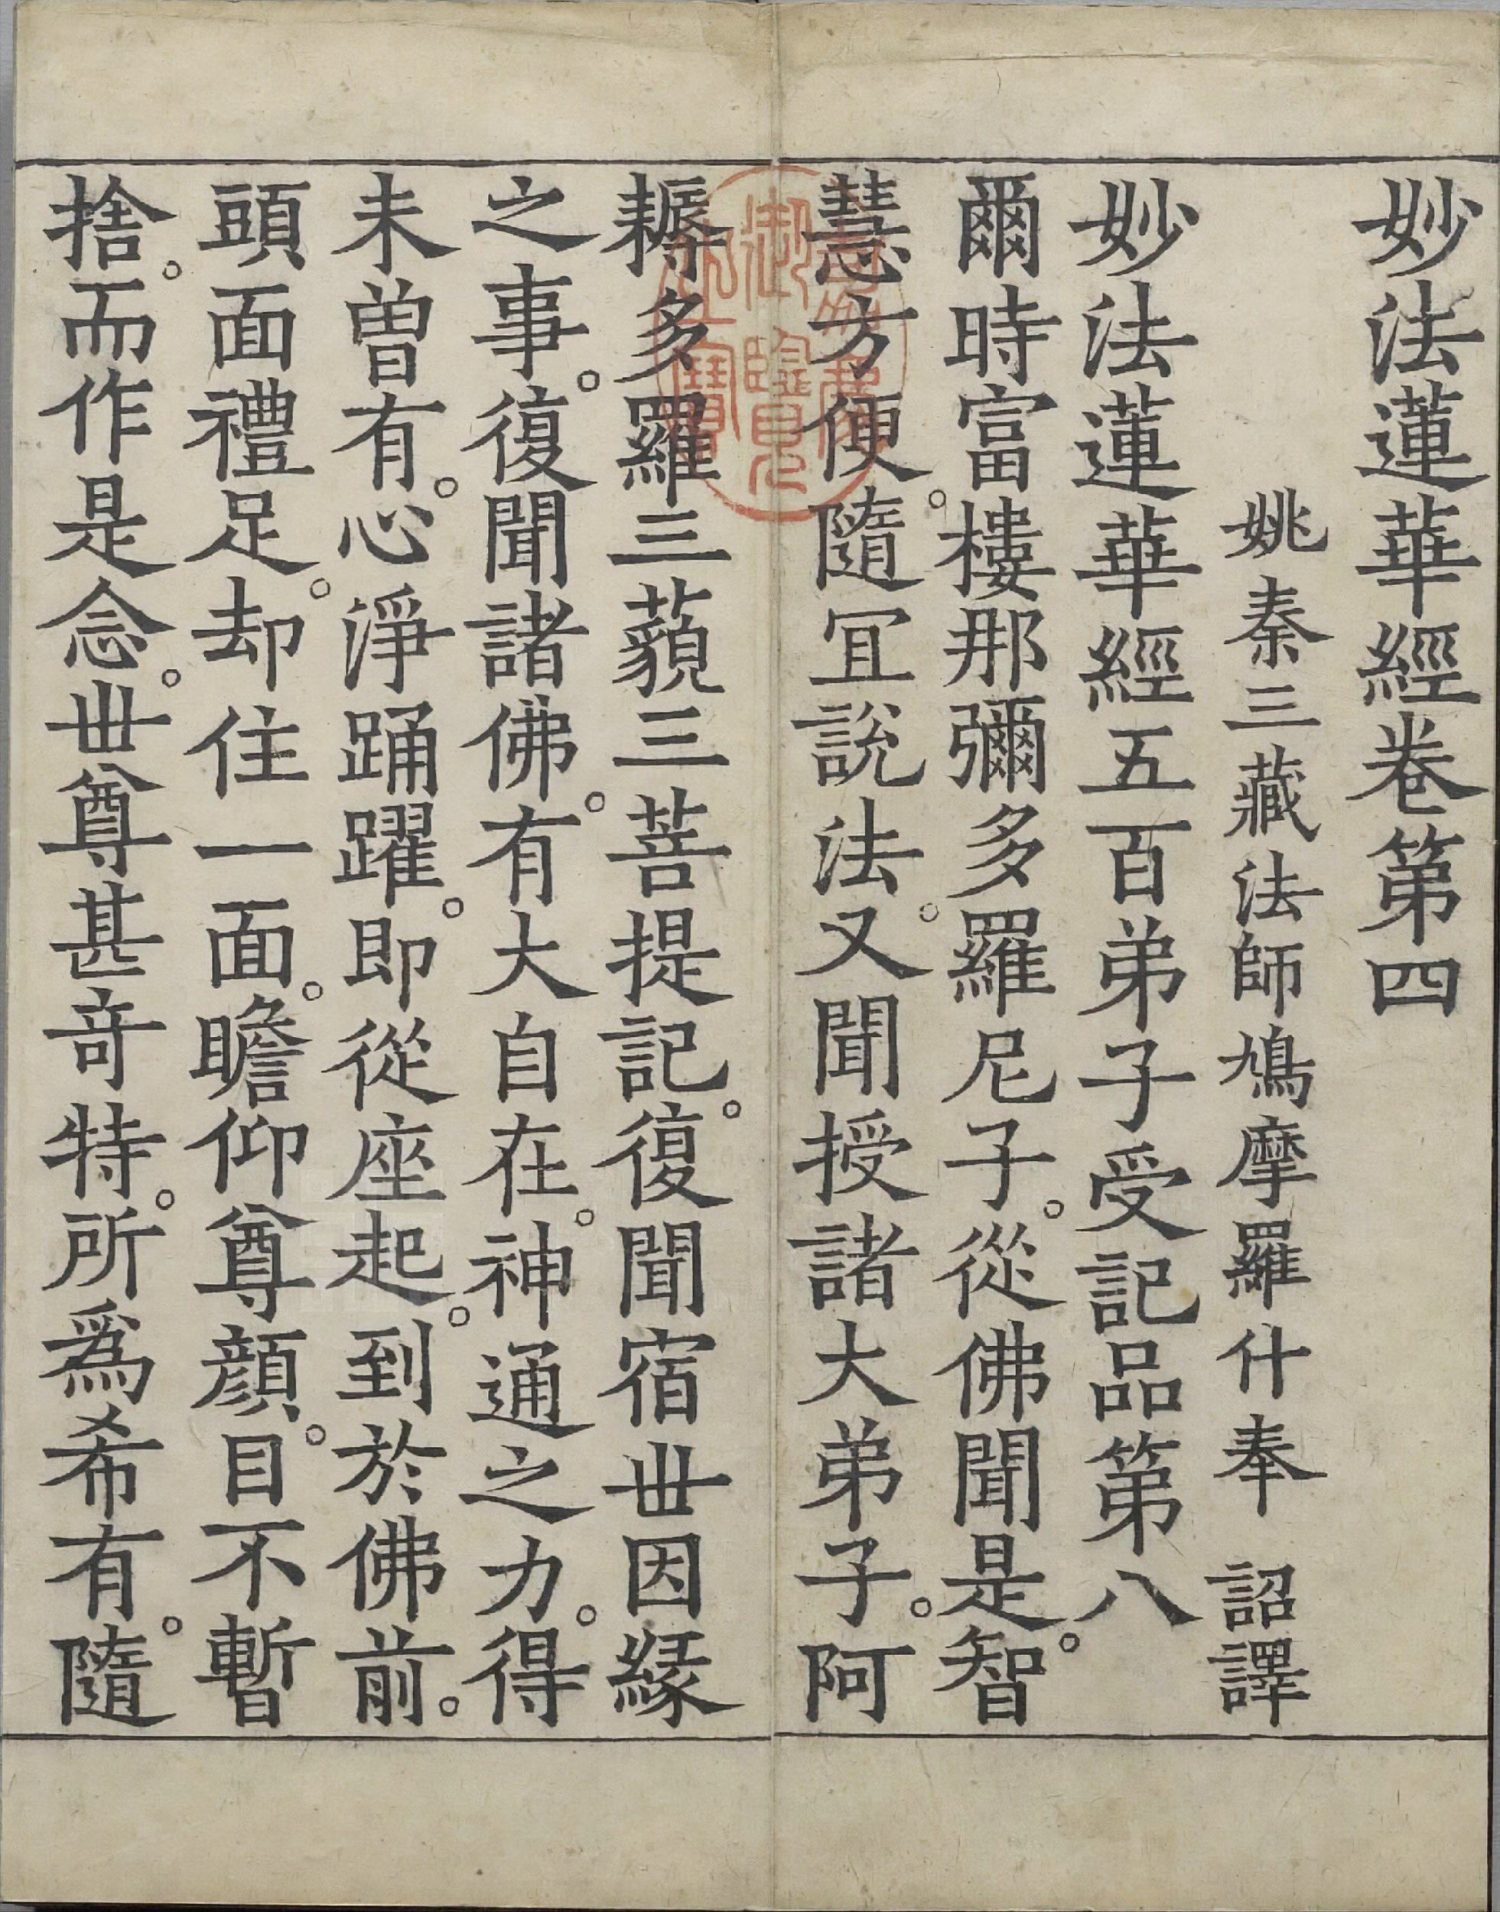 妙法蓮華經卷第四
姚秦三藏法師鳩摩羅什奉　詔譯
妙法蓮華經五百弟子受記品第八
爾時富樓那彌多羅尼子。從佛聞是智。
慧方便。隨冝說法。又聞授諸大弟子。阿
耨多羅三藐三菩提記。復聞宿世因緣
之事。復聞諸佛。有大自在。神通之力。得
未曾有。心淨踊躍。即從座起。到於佛前。
頭面禮足。却住一面。瞻仰尊顏。目不暫
捨。而作是念。世尊甚奇特。所爲希有。隨